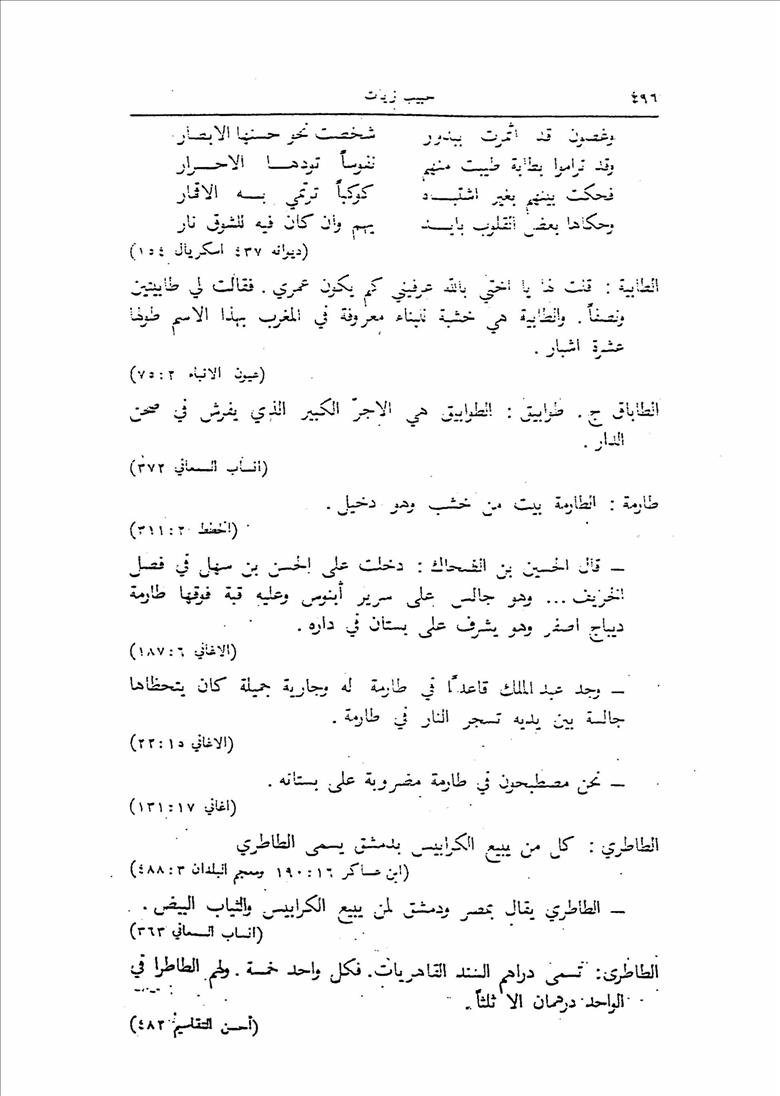 ٤٩٦ حبيب زيات
وغصون قد اثمرت ببدور شخصت نحو حسنها الابصار
وقد تراموا بطابة طيبت منهم نفوساً تودهـا الاحـرار
فحكت بينهم بغير اشتبـاه كوكباً ترتمي بـه الاقمار
وحكاها بعض القلوب بايـد يهم وان كان فيه للشوق نار
(ديوانه ٤٣٧ اسكريال ١٥٤)
الطابية : قلت لها يا اختي بالله عرفيني كم يكون عمري . فقالت لي طابيتين
ونصفاً . والطابية هي خشبة للبناء معروفة في المغرب بهذا الاسم طولها
عشرة اشبار .
(عيون الانباء ٢ : ٧٥)
الطاباق ج . طوابيق : الطوابيق هي الاجرّ الكبير الذي يفرش في صحن
الدار .
(انساب السمعاني ٣٧٢)
طارمة : الطارمة بيت من خشب وهو دخيل .
(الخطط ٢ : ٣١١)
– قال الحسين بن الضحاك : دخلت على الحسن بن سهل في فصل
الخريف ... وهو جالس على سرير أبنوس وعليه قبة فوقها طارمة
ديباج اصفر وهو يشرف على بستان في داره .
(الاغاني ٦ : ١٨٧)
– وجد عبد الملك قاعداً في طارمة له وجارية جميلة كان يتحظاها
جالسة بين يديه تسجر النار في طارمة .
(الاغاني ١٥ : ٢٢)
– نحن مصطبحون في طارمة مضروبة على بستانه .
(اغاني ١٧ : ١٣١)
الطاطري : كل من يبيع الكرابيس بدمشق يسمى الطاطري
(ابن عساكر ١٦ : ١٩٠ ومعجم البلدان ٣ : ٤٨٨)
– الطاطري يقال بمصر ودمشق لمن يبيع الكرابيس والثياب البيض .
(انساب السمعاني ٣٦٣)
الطاطرى : تسمى دراهم السند القاهريات . فكل واحد خمسة . ولهم الطاطرا في
الواحد درهمان الا ثلثاً .
(أحسن التقاسيم ٤٨٢)